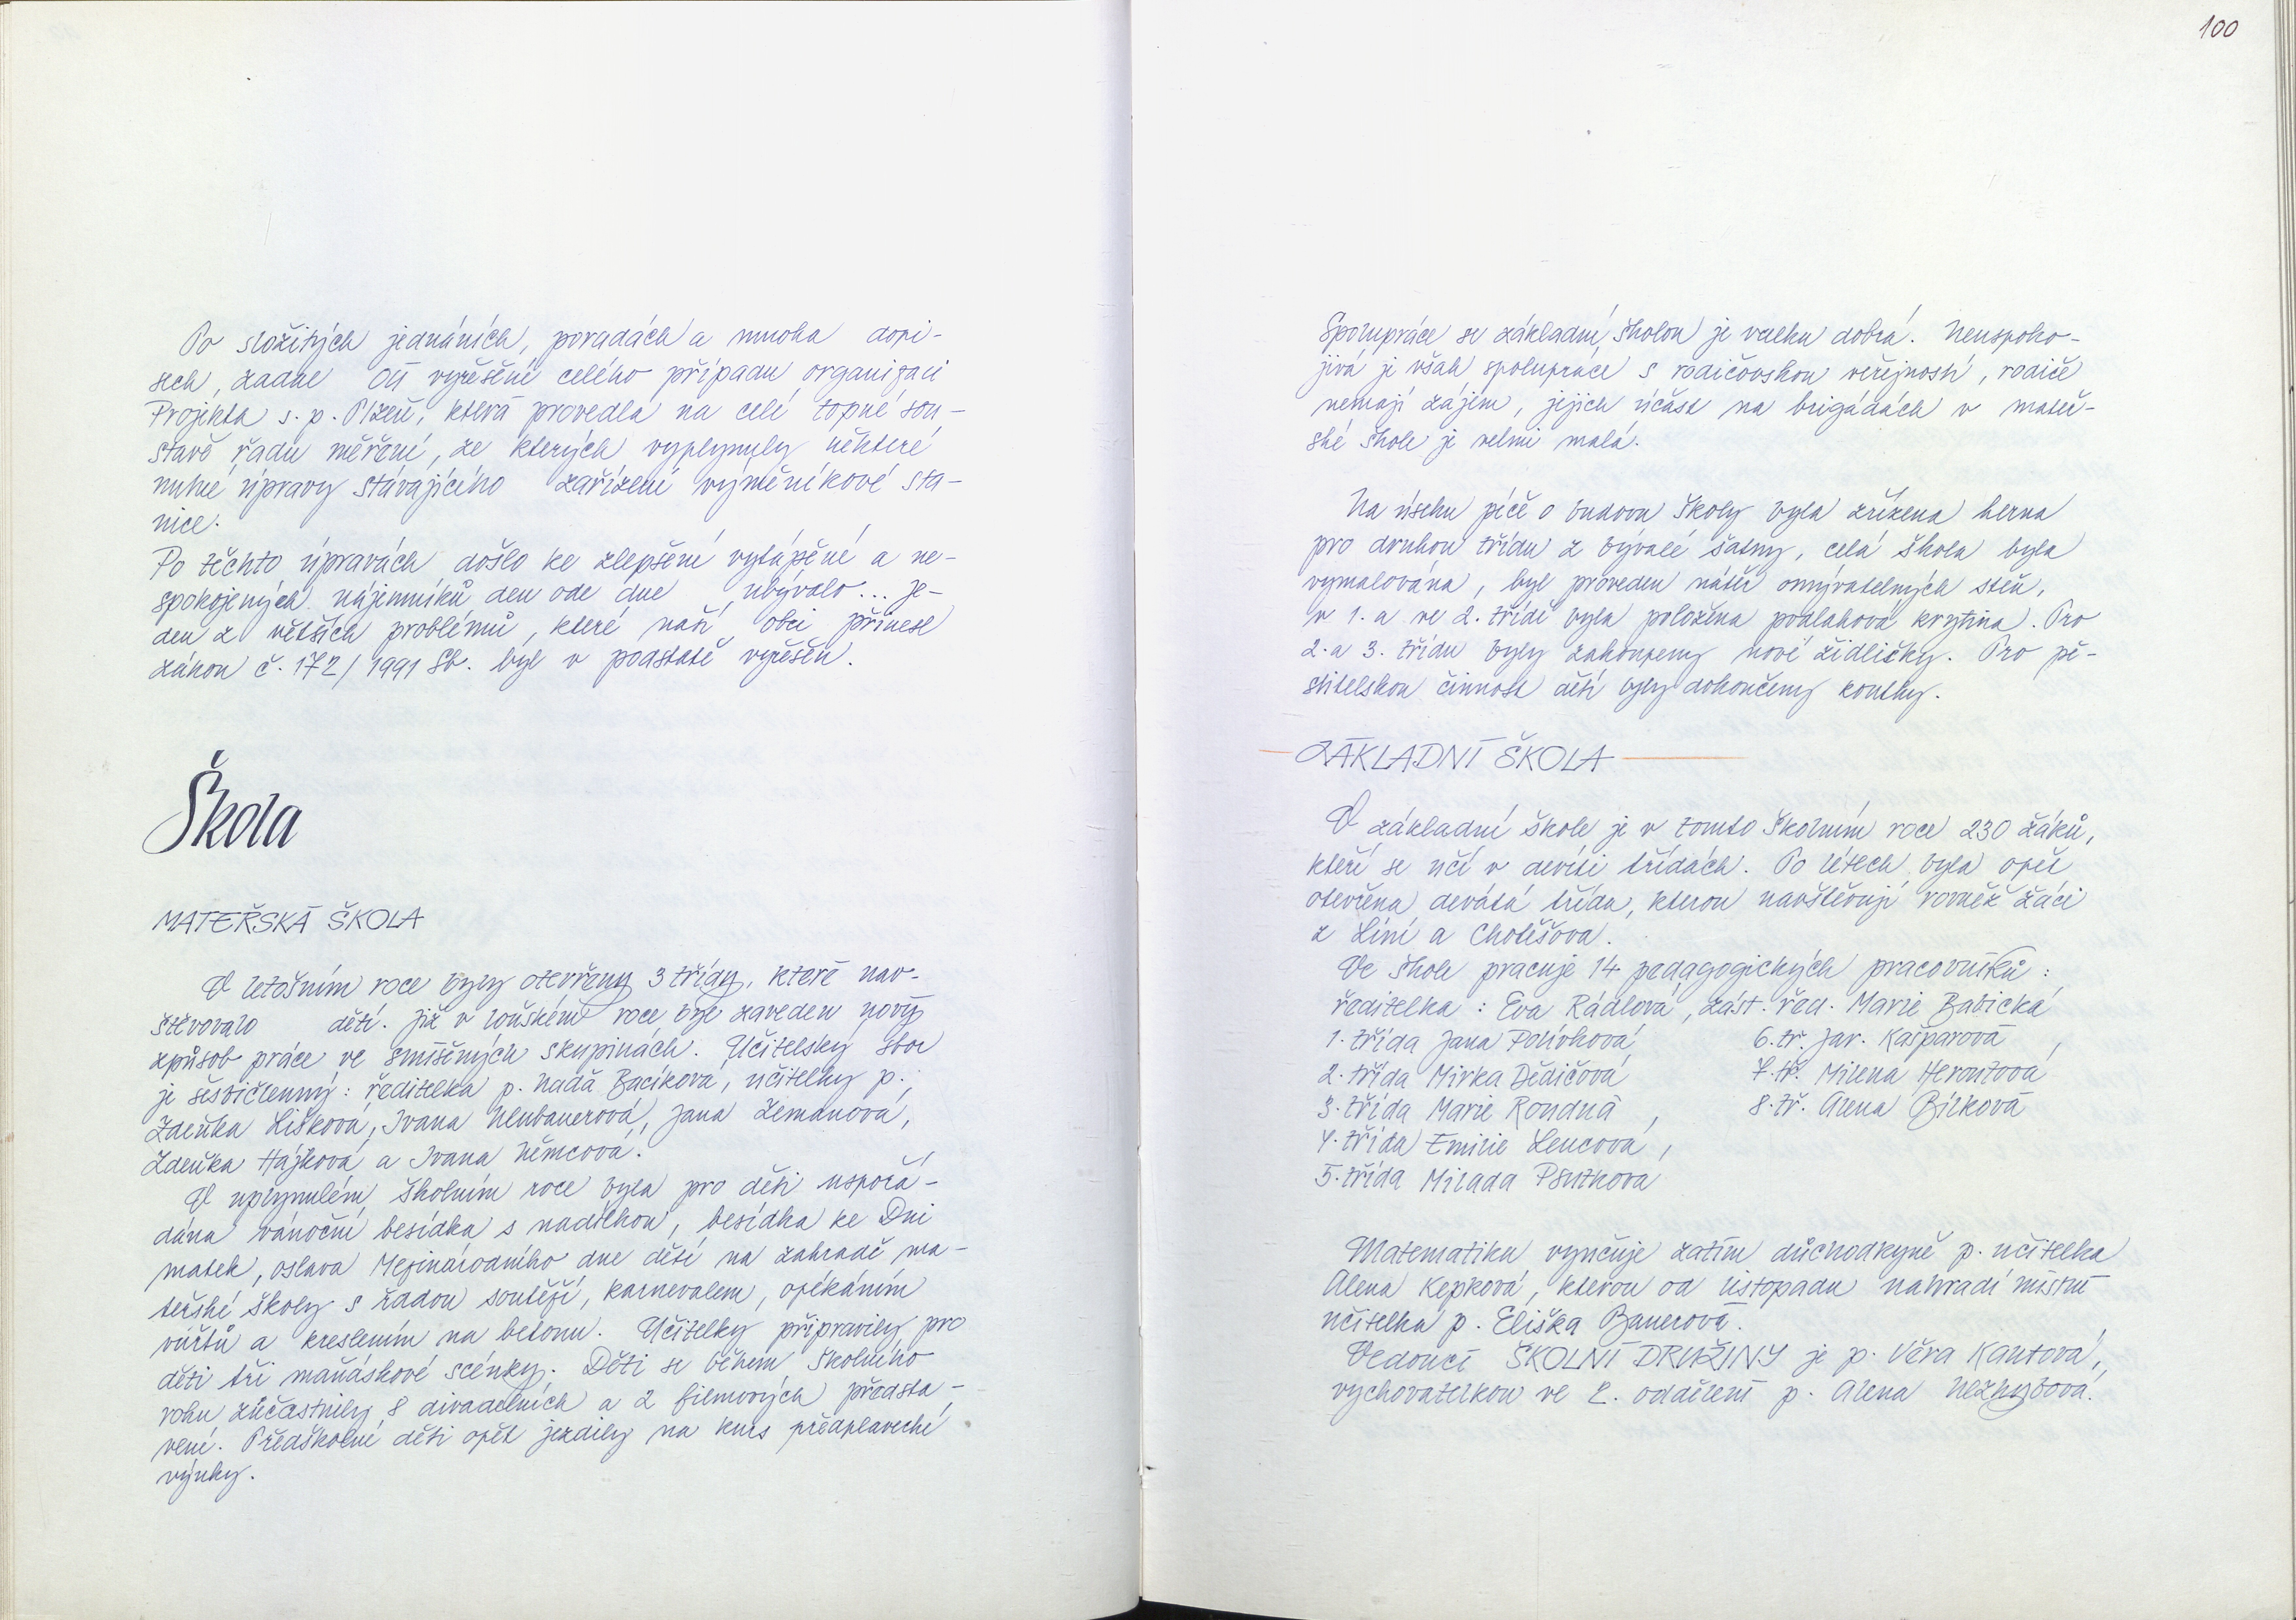 Po složitých jednáních, poradách a mnoha dopi-
sech, zadal OÚ vyřešení celého případu organizaci
Projekta s. p. Plzeň, která provedla na celé topné sou-
stavě řadu měření, ze kterých vyplynuly některé
nutné úpravy stávajícího zařízení výměníkové sta-
nice.
Po těchto úpravách došlo ke zlepšení vytápění a ne-
spokojených nájemníků den ode dne ubývalo... Je-
den z větších problémů, které naší obci přinesl
zákon č. 172/1991 Sb. byl v podstatě vyřešen.
Škola
MATEŘSKÁ ŠKOLA
V letošním roce byly otevřeny 3 třídy, které nav-
štěvovalo dětí. Již v loňském roce byl zaveden nový
způsob práce ve smíšených skupinách. Učitelský sbor
je šestičlenný: ředitelka p. Naďa Bacíková, učitelky p.
Zdeňka Lišková, Ivana Neubauerová, Jana Zemanová,
Zdeňka Hájková a Ivana Němcová.
V uplynulém školním roce byla pro děti uspořá-
dána vánoční besídka s nadílkou, besídka ke Dni
matek, oslava Mezinárodního dne dětí na zahradě ma-
teřské školy s řadou soutěží, karnevalem, opékáním
vuřtů a kreslením na betonu. Učitelky připravily pro
děti tři maňáskové scénky. Děti se během školního
roku zúčastnily 8 divadelních a 2 filmových představ-
vení. Předškolní děti opět jezdily na kurs předplavecké
výuky.
100
Spolupráce se základní školou je vcelku dobrá. Neuspoko-
jivá je však spolupráce s rodičovskou veřejností, rodiče
nemají zájem, jejich účast na brigádách v mateř-
ské škole je velmi malá.
Na úseku péče o budovu školy byla zřízena herna
pro druhou třídu z bývalé šatny, celá škola byla
vymalována, byl proveden nátěr omyvatelných stěn,
v 1. a ve 2. třídě byla položena podlahová krytina. Pro
2. a 3. třídu byly zakoupeny nové židličky. Pro pě-
stitelskou činnost dětí byly dokončeny koutky.
ZÁKLADNÍ ŠKOLA
V základní škole je v tomto školním roce 230 žáků,
kteří se učí v devíti třídách. Po létech byla opět
otevřena devátá třída, kterou navštěvují rovněž žáci
z Líní a Chotěšova.
Ve škole pracuje 14 pedagogických pracovníků:
ředitelka: Eva Rádlová, zást. řed. Marie Babická
1. třída Jana Polívková 6. tř. Jar. Kašparová,
2. třída Mirka Dědičová 7. tř. Milena Heroutová
3. třída Marie Rondná, 8. tř. Alena Bílková
4. třída Emilie Lencová,
5. třída Milada Psutková
Matematiku vyučuje zatím důchodkyně p. učitelka
Alena Kepková, kterou od listopadu nahradí místní
učitelka p. Eliška Bauerová.
Vedoucí ŠKOLNÍ DRUŽINY je p. Věra Kantová,
vychovatelkou ve 2. oddělení p. Alena Nezhybová.